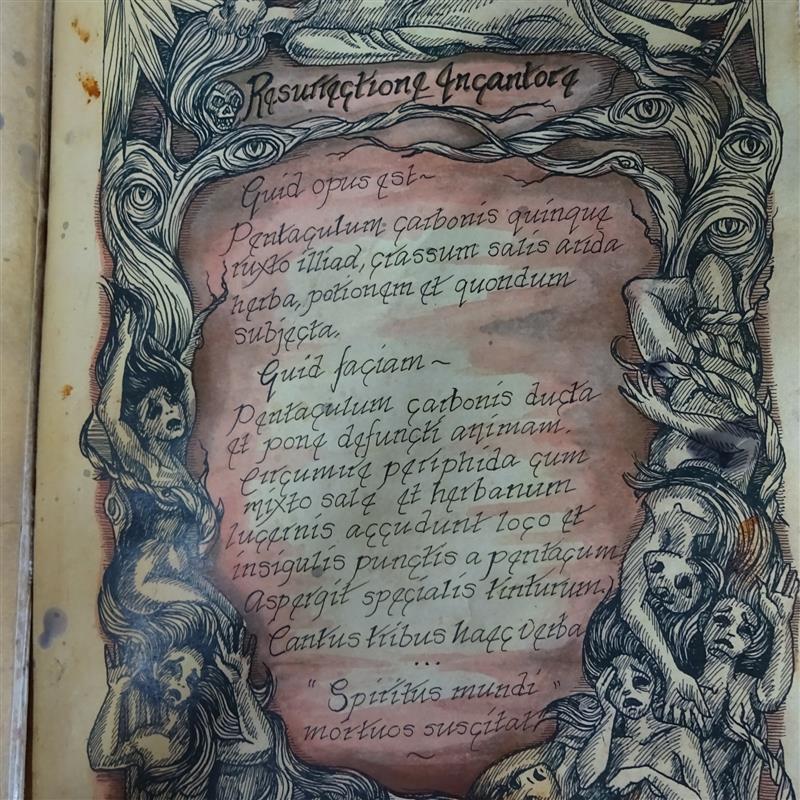 Resurrectione Incantore
Quid opus est~
Pentaculum carbonis quinque
ruxto illiad, crassum salis arida
herba, potionem et quondum
subjecta.
Quid faciam~
Pentaculum carbonis ducta
et pone defuncti animam.
Circumire periphida cum
mixto sale et herbanum
lucernis accudunt loco et
insigulis punctis a pentacum
Aspergit specialis tinturum.)
Cantus tribus haec verba
...
"Spiritus mundi"
mortuos suscitat?
~